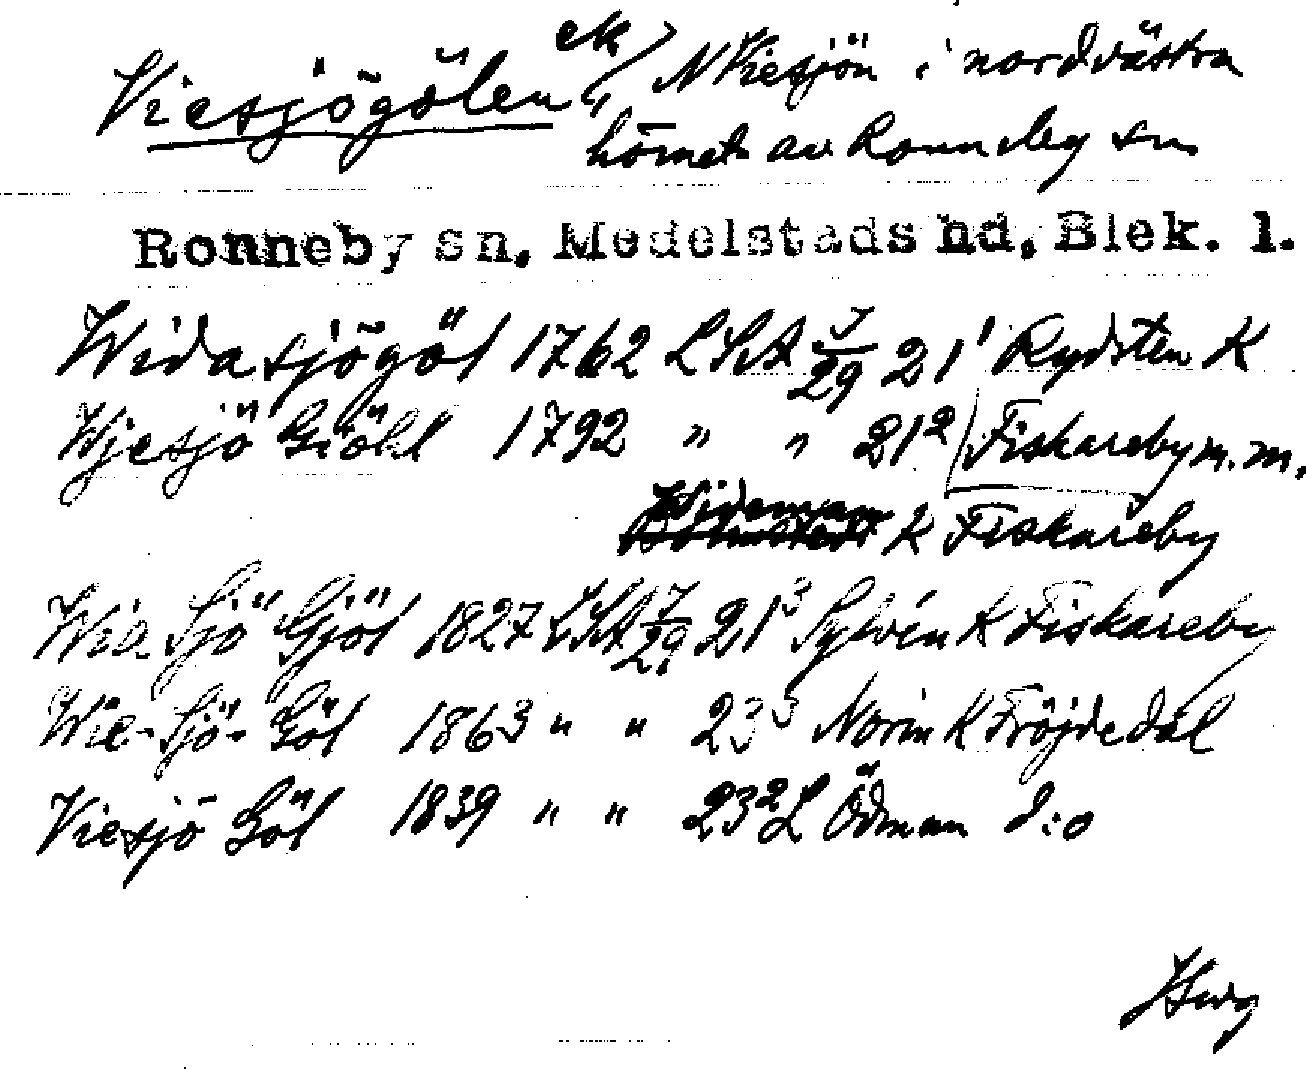 Viesjögölen ek / N Viesjön i nordvästra
hörnet av Ronneby sn
Ronneby sn, Medelstads hd, Blek. l.
Widasjögöl 1762 LSA J/29 21¹ Rydsten K
Wjesjö Giöhl 1792 " " 21² Fiskareby m. m.
Wideman K Fiskareby
Wia Sjö Gjöl 1827 LSA J/29 21³ Sylvén K Fiskareby
Wie-Sjö-Göl 1863 " " 23³ Norin K Fröjdedal
Viesjö Göl 1839 " " 23² L Ödman d:o